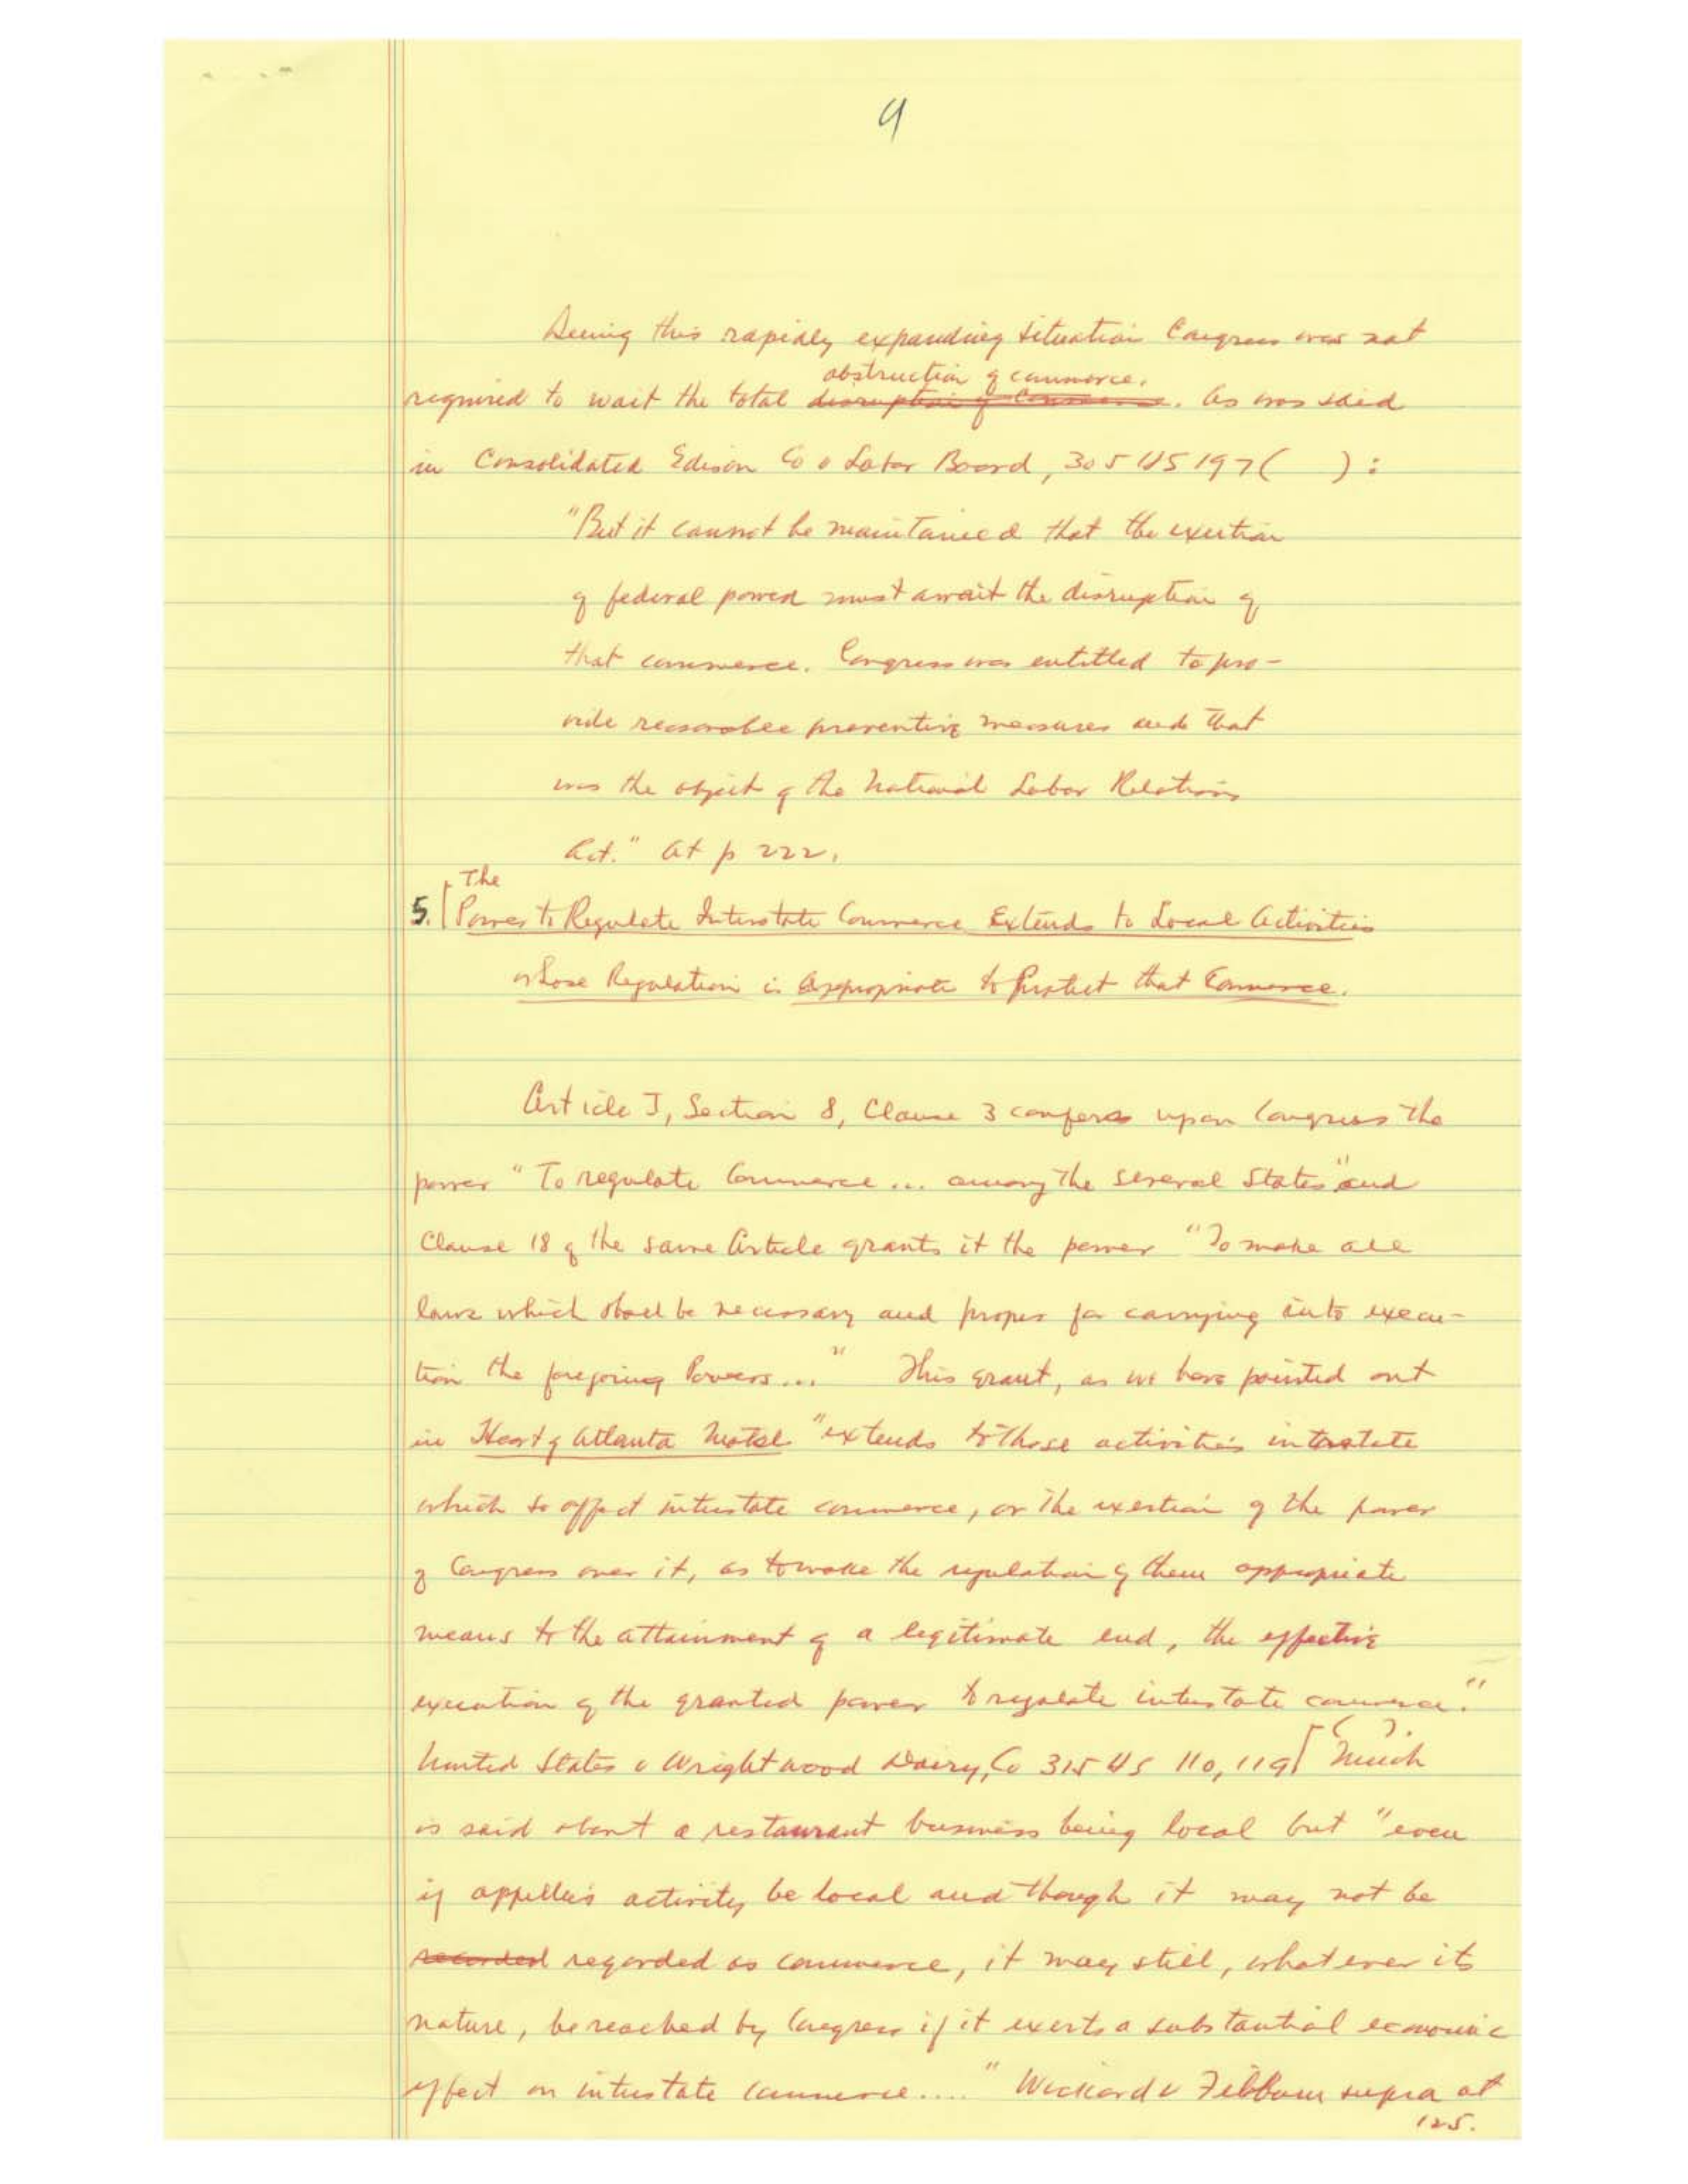 9
Seeing this rapidly expanding situation Congress was not
obstruction of commerce.
required to wait the total disruption of commerce. As was said
in Consolidated Edison Co v Labor Board, 305 US 197 (    ):
"But it cannot be maintained that the exertion
of federal power must await the disruption of
that commerce. Congress was entitled to pro-
vide reasonable preventive measures and that
was the object of the National Labor Relations
Act." At p 222.
The
5. Power to Regulate Interstate Commerce Extends to Local Activities
whose Regulation is Appropriate to Protect that Commerce.
Article I, Section 8, Clause 3 confers upon Congress the
power "To regulate Commerce ... among the several States" and
Clause 18 of the same Article grants it the power "To make all
laws which shall be necessary and proper for carrying into execu-
tion the foregoing Powers..." This grant, as we have pointed out
in Heart of Atlanta Motel "extends to those activities intrastate
which so affect interstate commerce, or the exertion of the power
of Congress over it, as to make the regulation of them appropriate
means to the attainment of a legitimate end, the effective
execution of the granted power to regulate interstate commerce."
( ).
United States v Wrightwood Dairy, Co 315 US 110, 119 Much
is said about a restaurant business being local but "even
if appellee's activity be local and though it may not be
recorded regarded as commerce, it may still, whatever its
nature, be reached by Congress if it exerts a substantial economic
effect on interstate commerce...." Wickard v Filburn supra at
125.